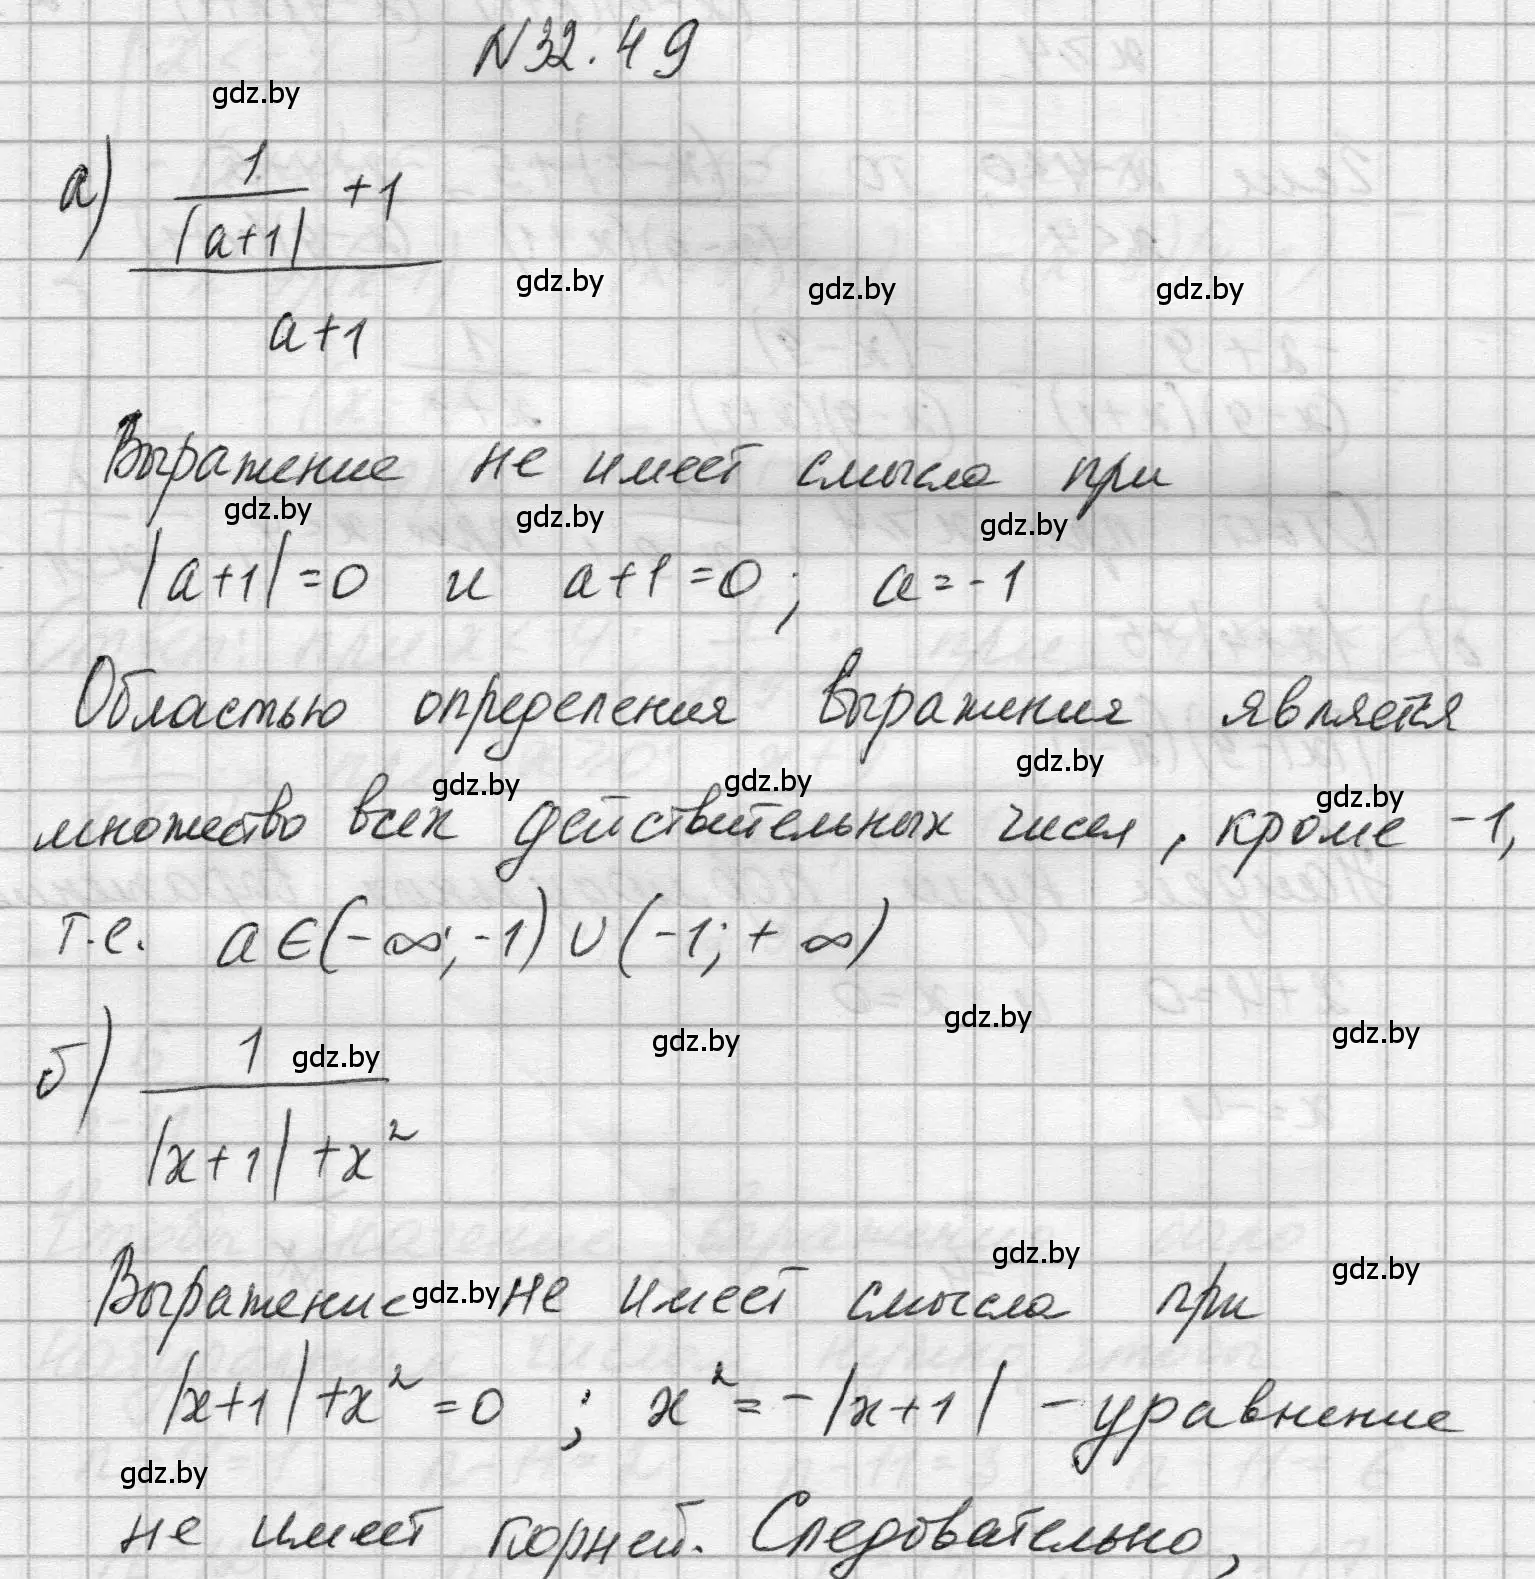 N32.49
gdz.by
а) 1
|a+1| +1
a+1
gdz.by gdz.by gdz.by
Выражение не имеет смысла при
gdz.by gdz.by gdz.by
|a+1|=0 и a+1=0; a=-1
Областью определения выражения является
gdz.by gdz.by gdz.by gdz.by
множество всех действительных чисел, кроме -1,
т.е. a∈(-∞;-1)∪(-1;+∞)
gdz.by gdz.by gdz.by gdz.by
б) 1
|x+1|+x²
gdz.by gdz.by gdz.by
Выражение не имеет смысла при
|x+1|+x²=0; x²=-|x+1| - уравнение
gdz.by
не имеет корней. Следовательно,